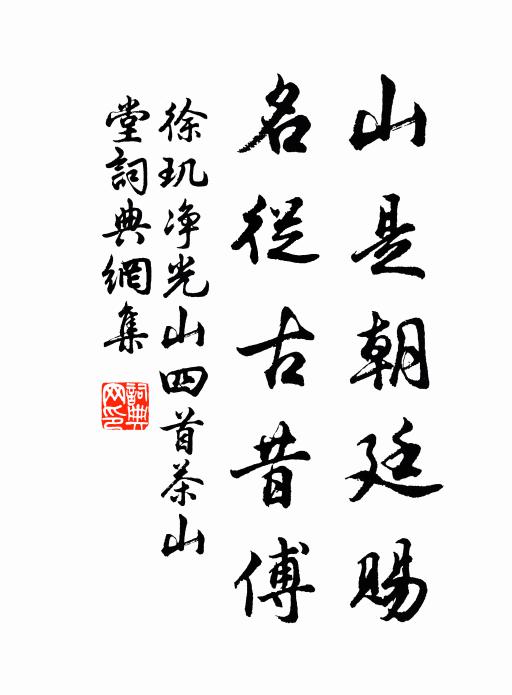 山是朝廷賜
名從古昔傳
徐玑净光山四首茶山
堂詞典網集
詞典網印